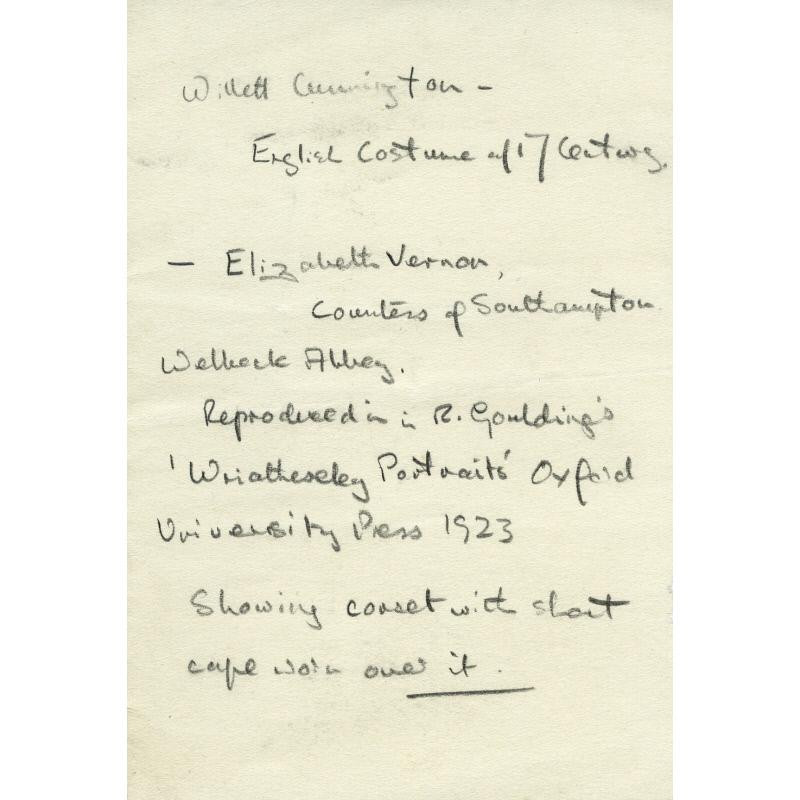 Willett Cunnington -
English Costume of 17 Century.
- Elizabeth Vernon,
Countess of Southampton
Welbeck Abbey.
Reproduced in in R. Goulding's
'Wriothesley Portraits' Oxford
University Press 1923
Showing corset with short
cape worn over it.